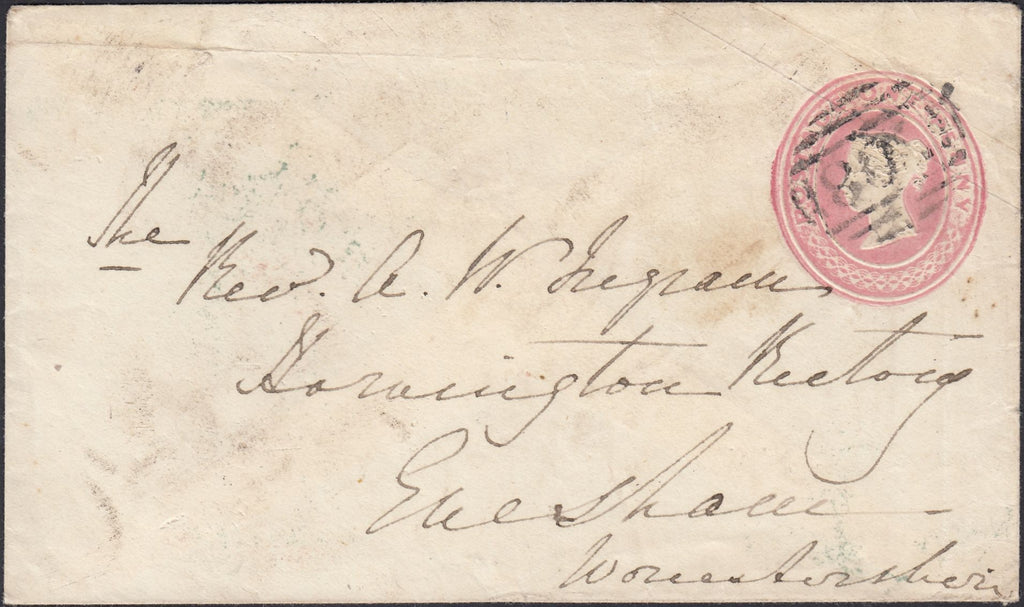 ONE PENNY
The
Rev. A. W. Ingram
Harvington Rectory
Evesham
Worcestershire